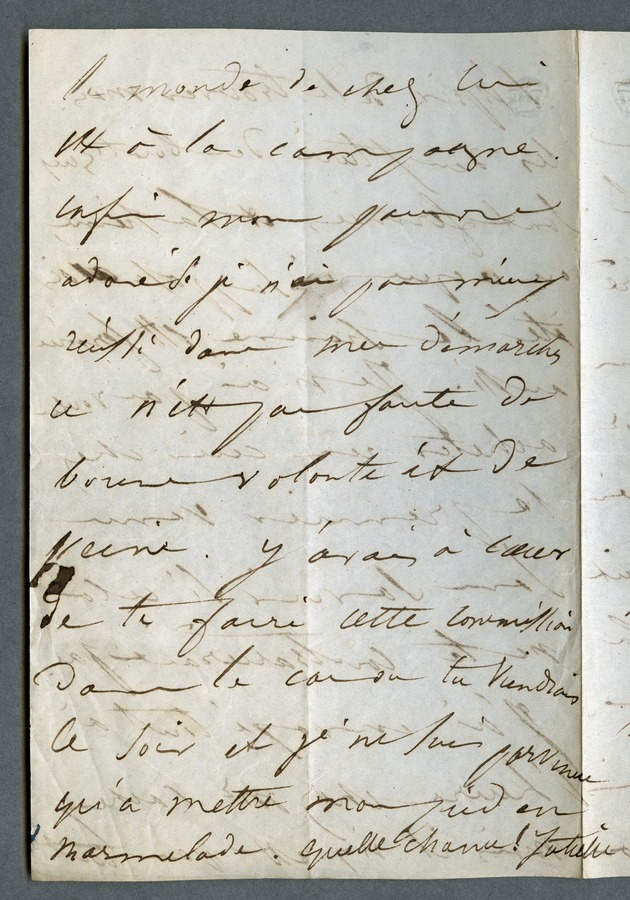 le monde de chez lui
est à la campagne.
enfin mon pauvre
adoré si je n'ai pas mieux
réussi dans mes démarches
ce n'est pas faute de
bonne volonté et de
peine. j'avais à cœur
de te faire cette commission
dans le cas où tu viendrais
ce soir et je ne suis parvenue
qu'à mettre mon pied en
marmelade. quelle chance! Juliette